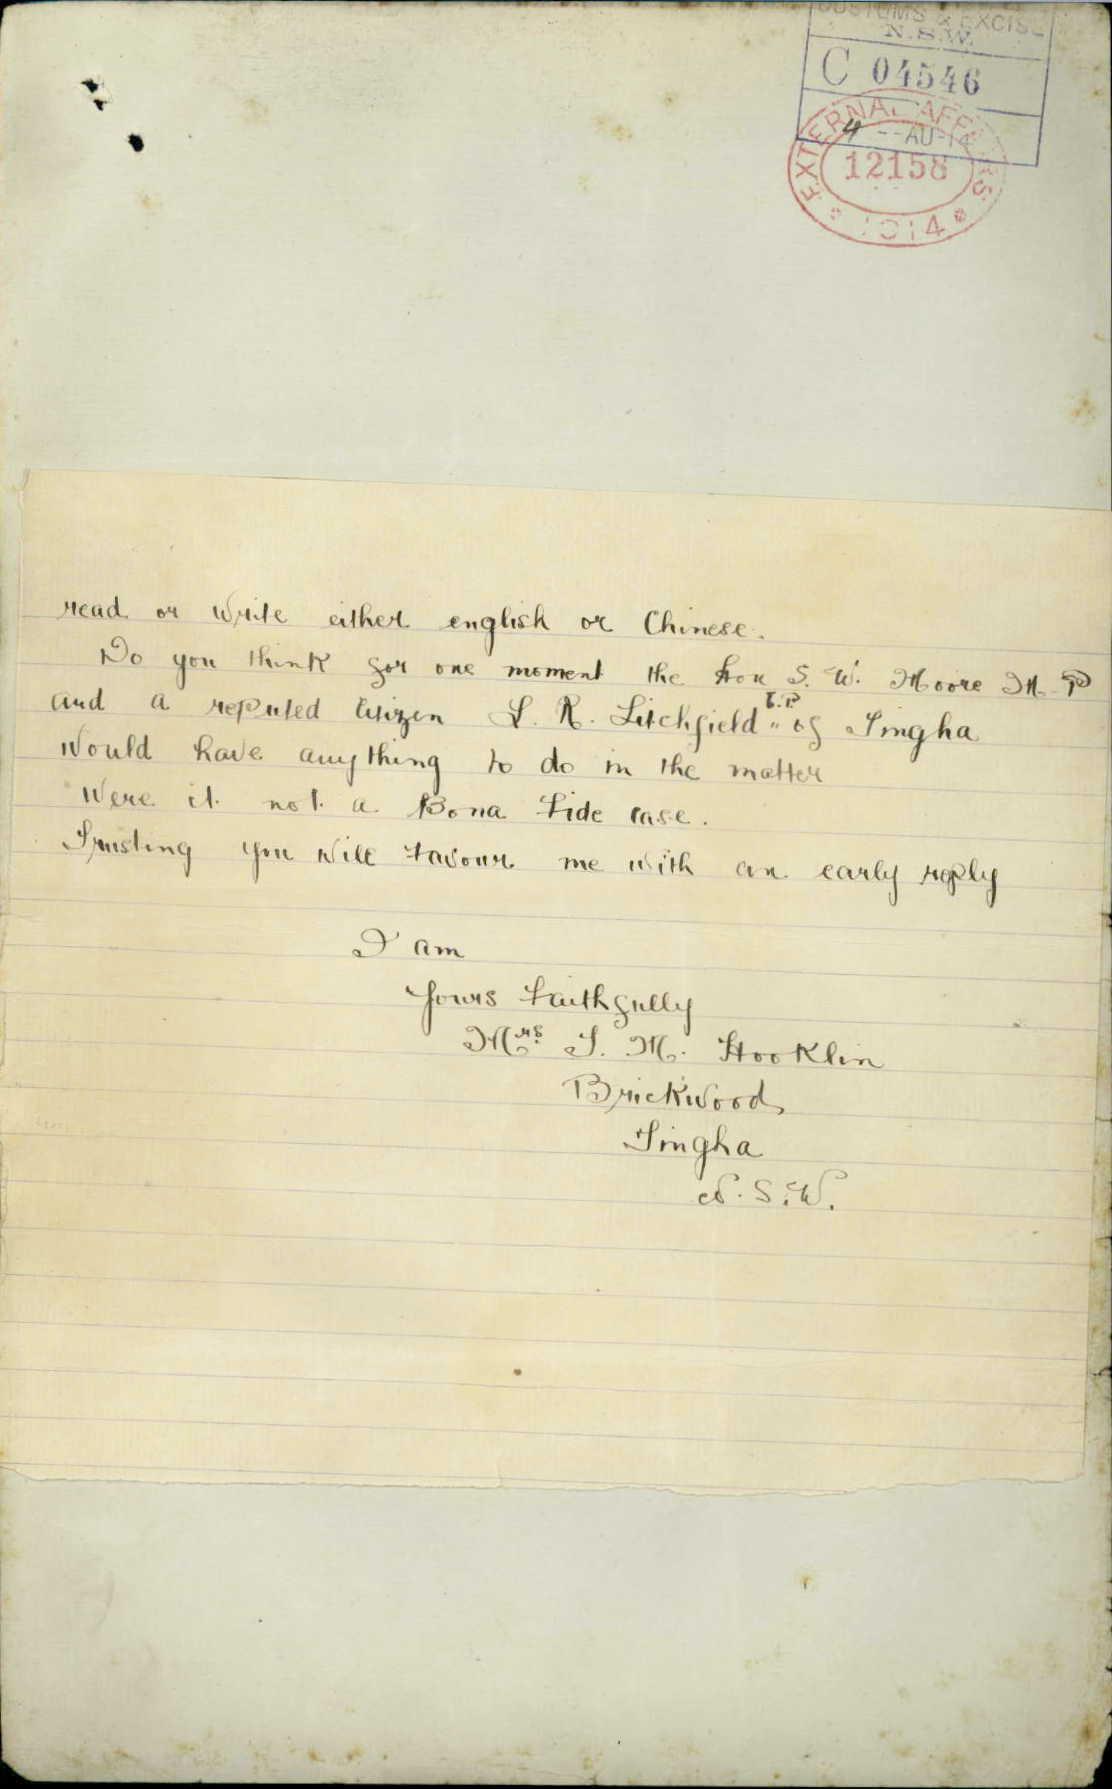 CUSTOMS & EXCISE
N.S.W.
C 04546
EXTERNAL AFFAIRS
4 --AU-14
12158
1914
read or write either english or Chinese.
Do you think for one moment the Hon S. W. Moore M. P
and a reputed Citizen L. R. Litchfield " of Tingha
Would have anything to do in the matter
Were it not a Bona Fide case.
Trusting you will favour me with an early reply
I am
Yours Faithfully
Mrs. T. M. Hooklin
Brickwood
Tingha
N. S. W.